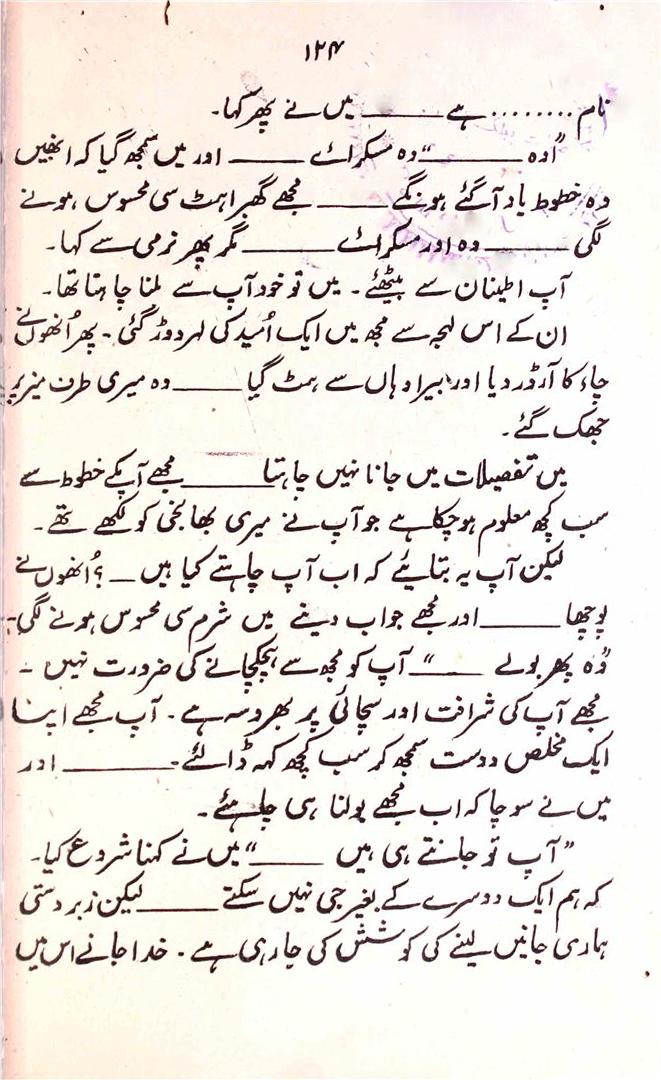 ۱۲۴
نام ........ ہے ——— میں نے پھر کہا۔
"اوہ ———" وہ مسکرائے ——— اور میں سمجھ گیا کہ انھیں
وہ خطوط یاد آگئے ہونگے ——— مجھے گھبراہٹ سی محسوس ہونے
لگی ——— وہ اور مسکرائے ——— مگر پھر نرمی سے کہا۔
آپ اطینان سے بیٹھئے۔ میں تو خود آپ سے ملنا چاہتا تھا۔
ان کے اس لہجہ سے مجھ میں ایک اُمید کی لہر دوڑ گئی۔ پھر اُنھوں نے
چاء کا آرڈر دیا اور بیرا وہاں سے ہٹ گیا ——— وہ میری طرف میز پر
جھک گئے۔
میں تفصیلات میں جانا نہیں چاہتا ——— مجھے آپکے خطوط سے
سب کچھ معلوم ہوچکا ہے جو آپ نے میری بھانجی کو لکھے تھے۔
لیکن آپ یہ بتائیے کہ اب آپ چاہتے کیا ہیں —؟ اُنھوں نے
پوچھا ——— اور مجھے جواب دینے میں شرم سی محسوس ہونے لگی۔
"وہ پھر بولے ———" آپ کو مجھ سے ہچکچانے کی ضرورت نہیں۔
مجھے آپ کی شرافت اور سچائی پر بھروسہ ہے۔ آپ مجھے اپنا
ایک مخلص دوست سمجھ کر سب کچھ کہہ ڈالئے۔ ——— اور
میں نے سوچا کہ اب مجھے بولنا ہی چاہئے۔
"آپ تو جانتے ہی ہیں ———" میں نے کہنا شروع کیا۔
کہ ہم ایک دوسرے کے بغیر جی نہیں سکتے ——— لیکن زبردستی
ہماری جانیں لینے کی کوشش کی جارہی ہے۔ خدا جانے اس میں